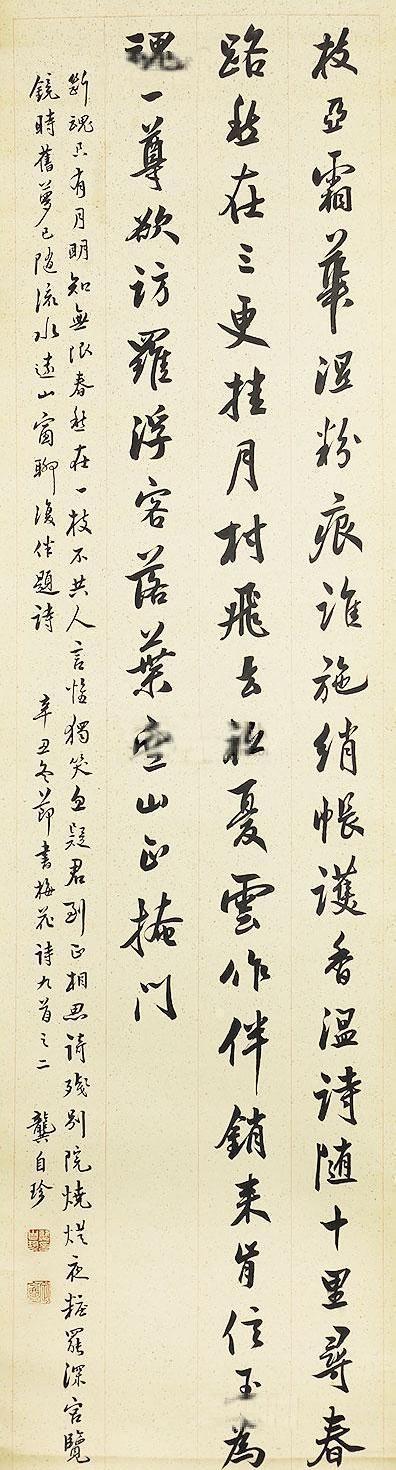 枝亞霜華溼粉痕誰施綃帳護香溫詩隨十里尋春
路愁在三更挂月村飛去祗憂雲作伴銷來肯信玉為
魂一尊欲訪羅浮客落葉空山正掩門
斷魂只有月明知無限春愁在一枝不共人言惟獨笑忽疑君到正相思詩殘別院燒燈夜粧罷深宮覽
鏡時舊夢已隨流水遠山窗聊復伴題詩 辛丑冬節書梅花詩九首之二 龔自珍